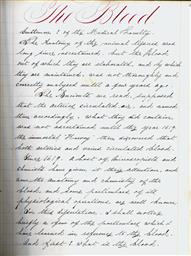 The Blood
of the Medical Faculty
The Anatomy of the animal figure was
long since ascertained, but the blood
out of which they are elaborated, and by which
they are maintained, was not thoroughly and
correctly analysed until a few years ago.
The Ancients we read, supposed
that the arteries circulated air, and named
them accordingly. What they did contain
was not ascertained until the year 1619
the immortal Harvey then discovered that
both arteries and veins circulated blood.
Since 1619, a host of
chemists have given it their attention, and
now the anatomy and chemistry of the
blood, and some particulars of its
physiological operations are well known.
In this dissertation, I shall notice
briefly a few of the particulars which I
have learned in reference to the blood.
And first: what is the blood.